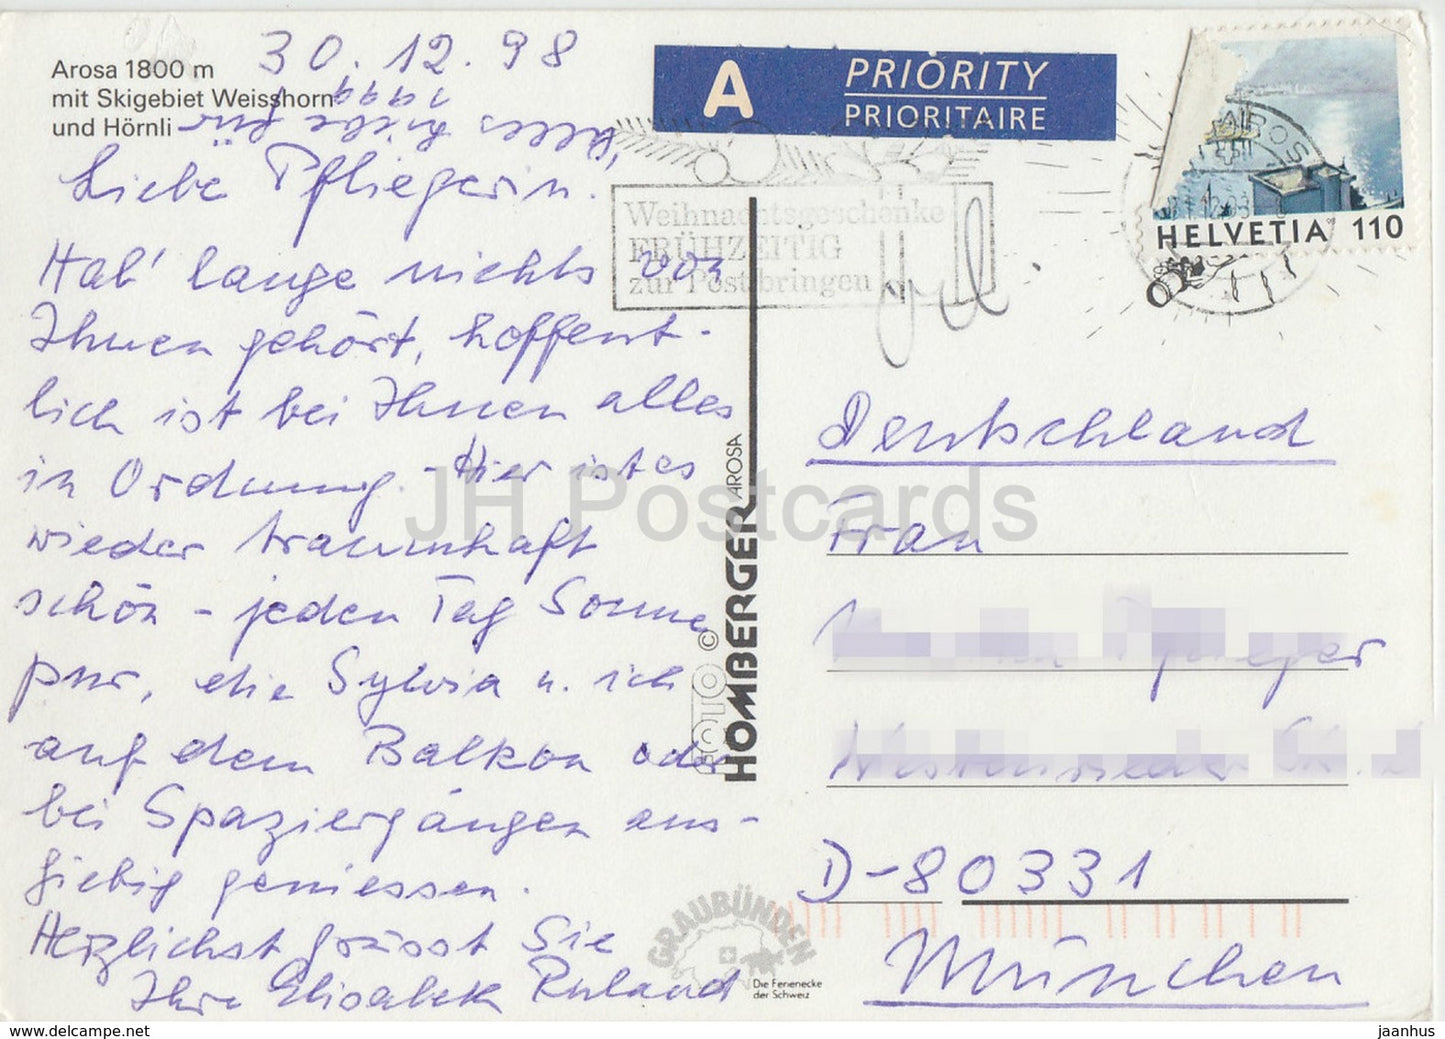 Arosa 1800 m
mit Skigebiet Weisshorn
und Hörnli
30.12.98
Alles Liebe für
1999
Liebe Pfliegerin!
Hab' lange nichts von
Ihnen gehört, hoffent-
lich ist bei Ihnen alles
in Ordnung. Hier ist es
wieder traumhaft
schön - jeden Tag Sonne
pur, die Sylvia u. ich
auf dem Balkon oder
bei Spaziergängen aus-
giebig geniessen.
Herzlichst grüsst Sie
Ihre Elisabeth Ruland
A
PRIORITY
PRIORITAIRE
Weihnachtsgeschenke
FRÜHZEITIG
zur Post bringen
AROSA
HELVETIA 110
Deutschland
Frau
D-80331
München
FOTO ©
HOMBERGER AROSA
GRAUBÜNDEN
Die Ferienecke
der Schweiz
JH Postcards
jh-postcard.com
jaanhus